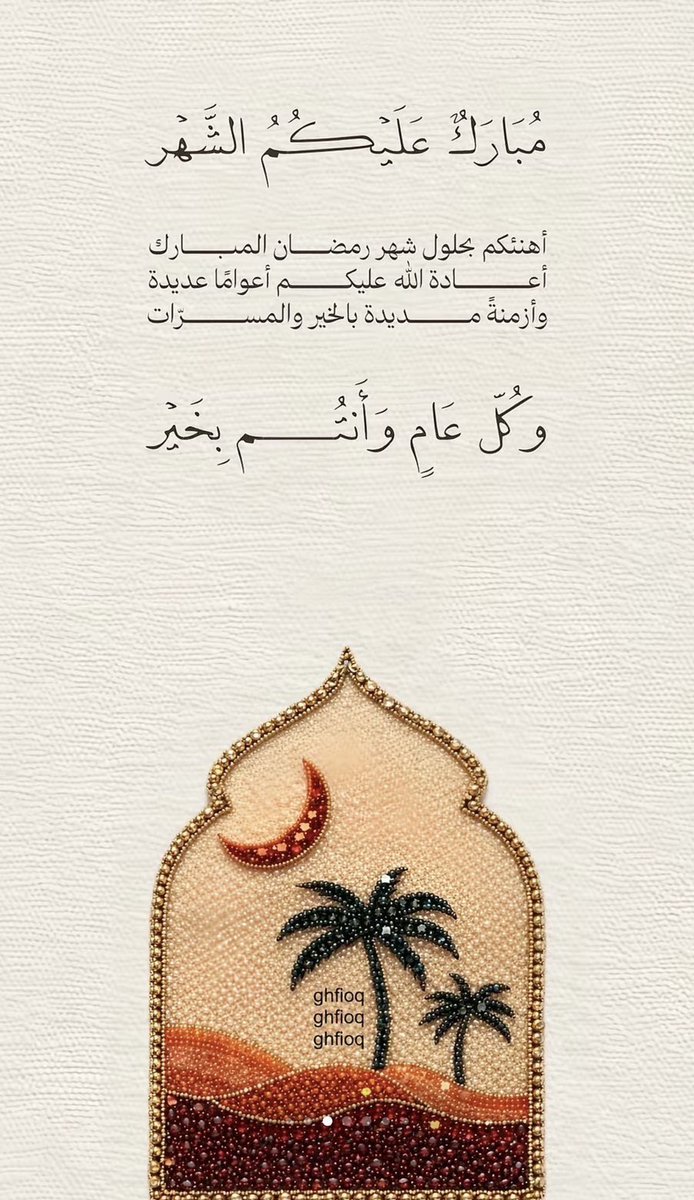 مُبَارَكٌ عَلَيْكُمُ الشَّهْر
أهنئكم بحلول شهر رمضان المبارك
أعادة الله عليكم أعوامًا عديدة
وأزمنةً مديدة بالخير والمسرّات
وكُلّ عَامٍ وَأَنتُم بِخَيْر
ghfioq
ghfioq
ghfioq